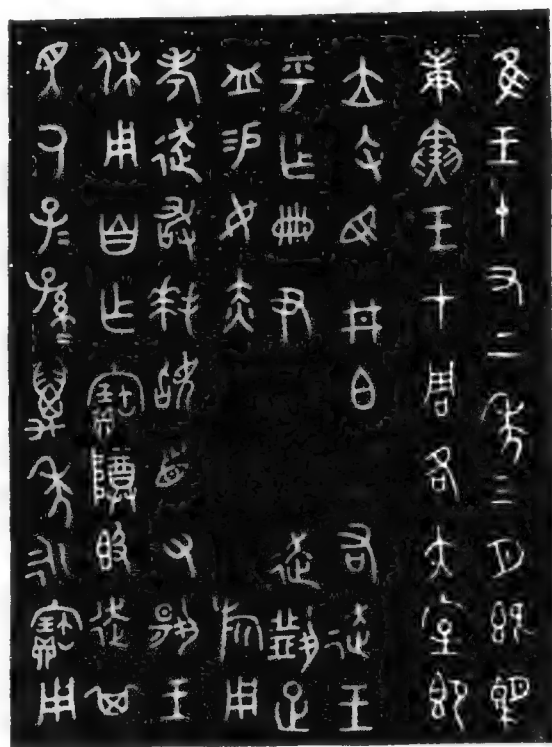 隹王十又二年三月既望
庚寅王才周各大室即
立司馬井白右走王
乎乍冊尹走疋
易女赤旂用
事走敢拜𩒨首對揚王
休用自乍寶尊𣪘走其
眾厥子=孫=萬年永寶用